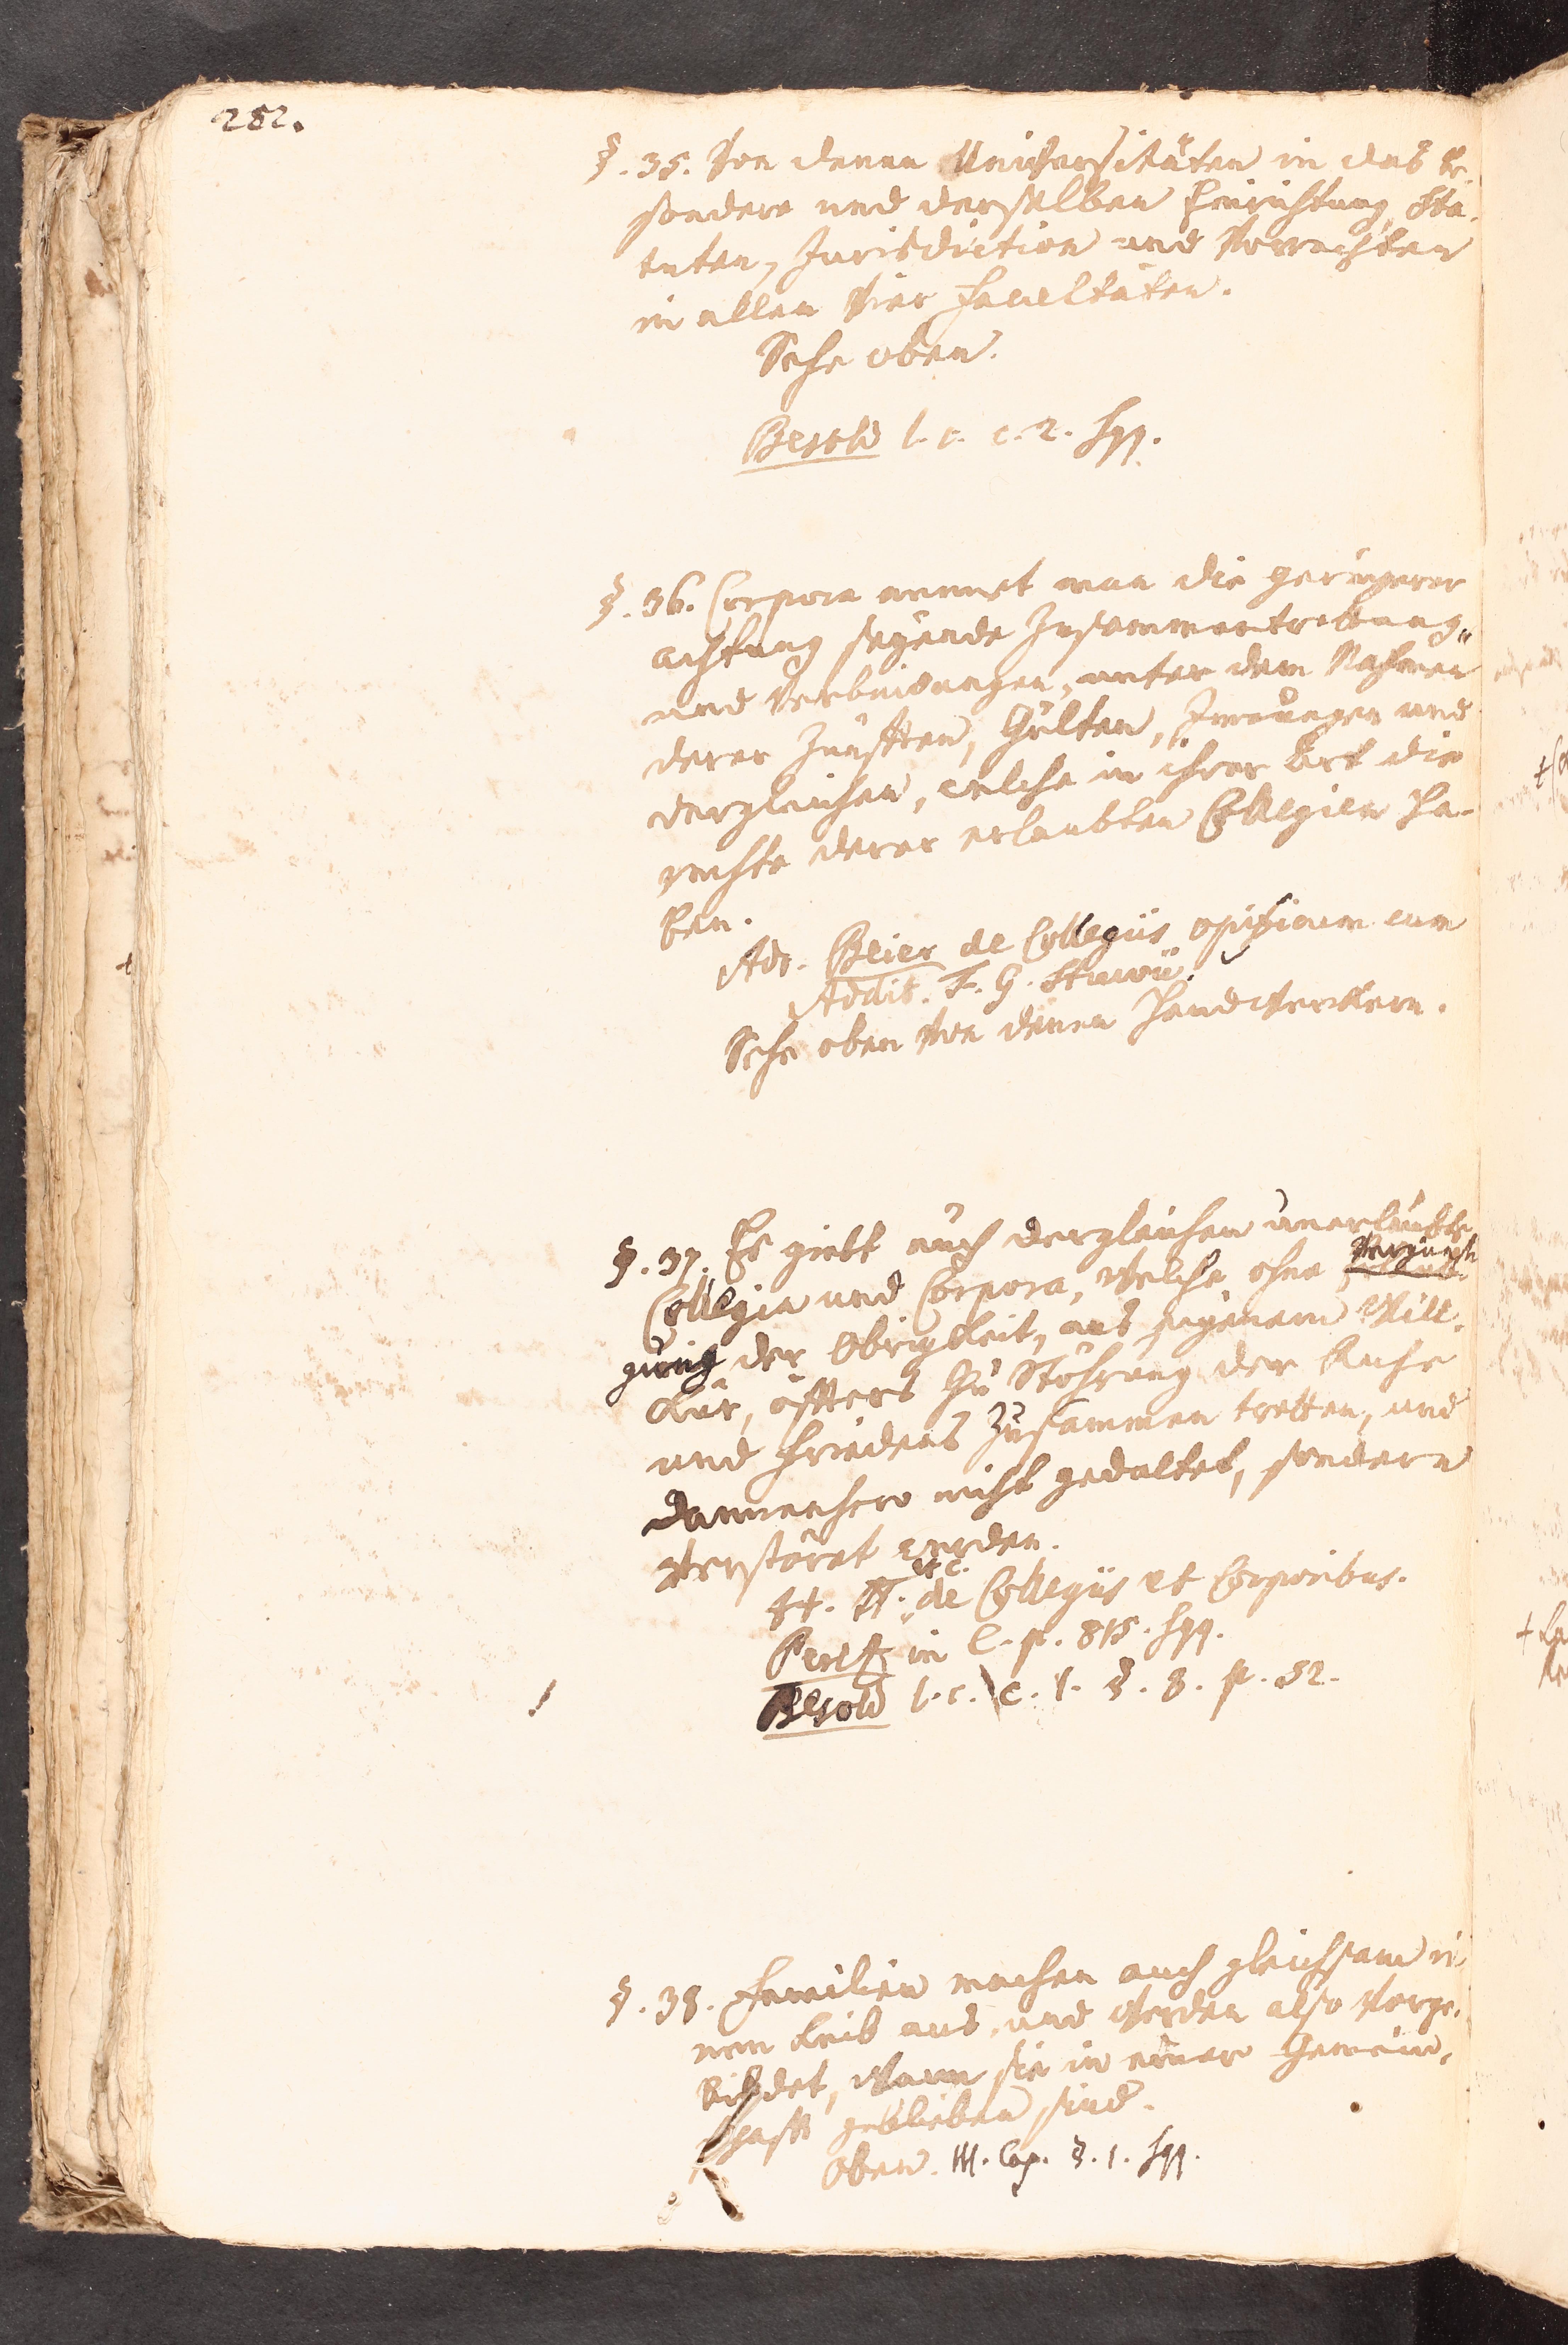 282.
§. 35. Von denen Universitäten in das be-
sondere und derselben Einrichtung, Sta-
tuten, Jurisdiction und Vorrechten
in allen Vier Facultäten.
Sehe oben.
Besold l. c. c. 2. sqq.
§. 36. Corpora nennet man die geringerer
achtung seyende Zusammentrettung
und Verbindungen, unter dem Nahmen
derer Zünfften, Gülten, Innungen und
dergleichen, welche in ihrer Art die
rechte derer erlaubten Collegien ha-
ben.
Adr. Beier de Collegiis opificum cum
Addit. F. G. Struvii.
Sehe oben Von denen Handwerckern.
§. 37. Es giebt auch dergleichen unerlaubte
Collegia und Corpora, Welche ohne Vergünsti-
gung der Obrigkeit, aus eigenem Will-
kür, öffters Zu Stöhrung der Ruhe
und Friedens Zusammen tretten, und
dannenhero nicht gedultet, sondern
zerstöret werden.
tt. ff. et C. de Collegiis et Corporibus.
Perez in C. p. 815. sqq.
Besold l. c. c. 1. §. 8. p. 52.
§. 38. Familien machen auch gleichsam ei-
nen Leib aus, und Werden also Vorge-
bildet, Wann sie in einer Gemein-
schafft geblieben sind.
Oben. III. Cap. §. 1. sqq.